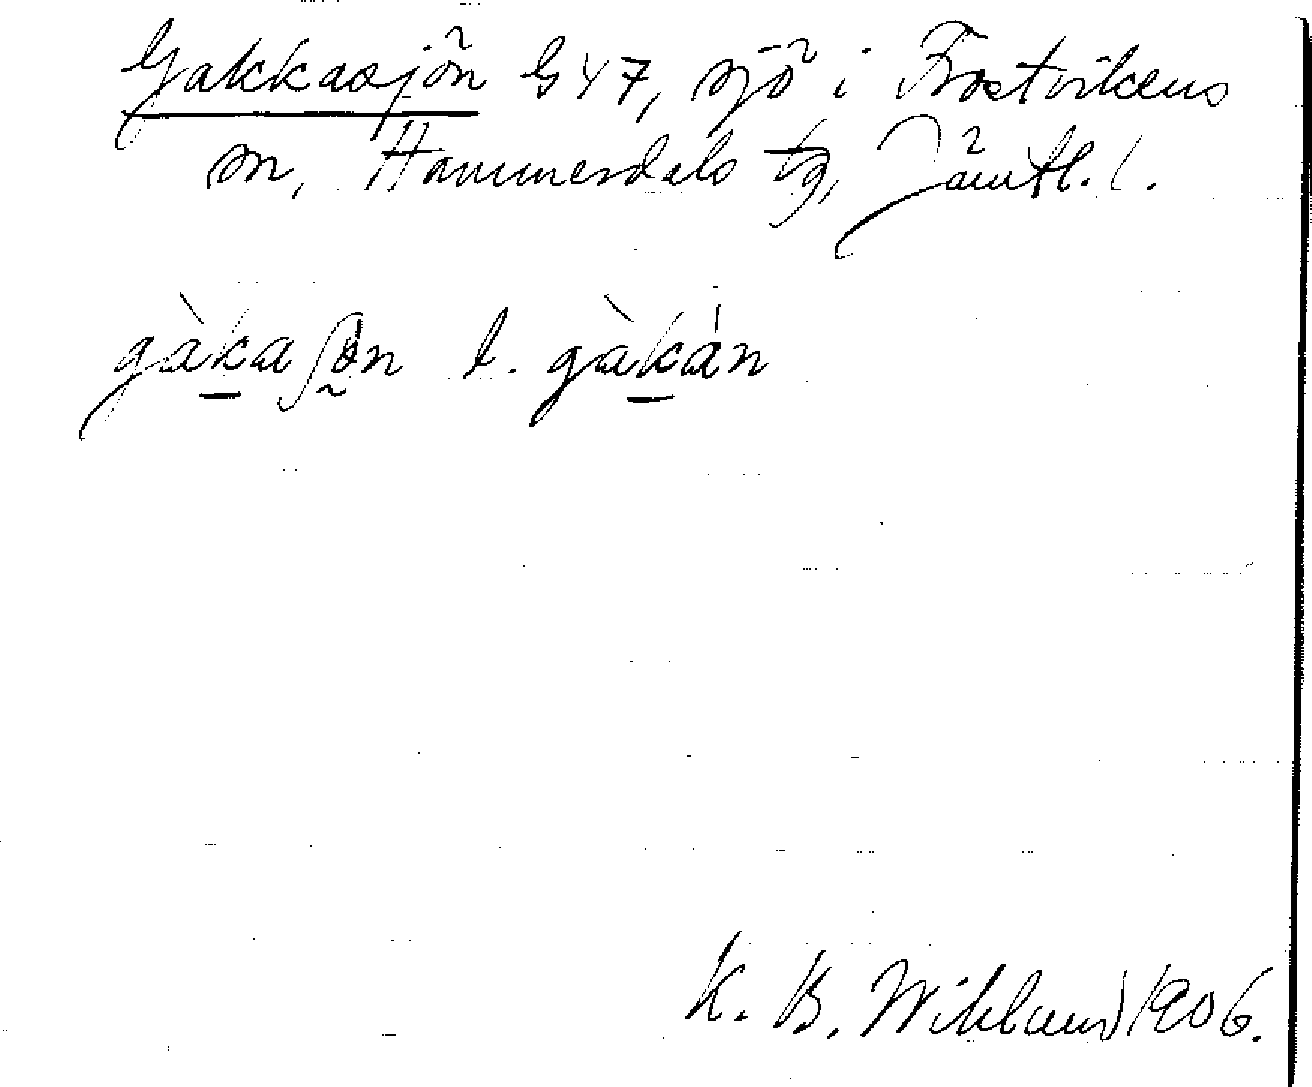 Gakkasjön G47, sjö i Frostvikens
sn, Hammerdals tg, Jämtl. l.
gàka̱ʃø̰n l. gàḵán
K. B. Wiklund 1906.